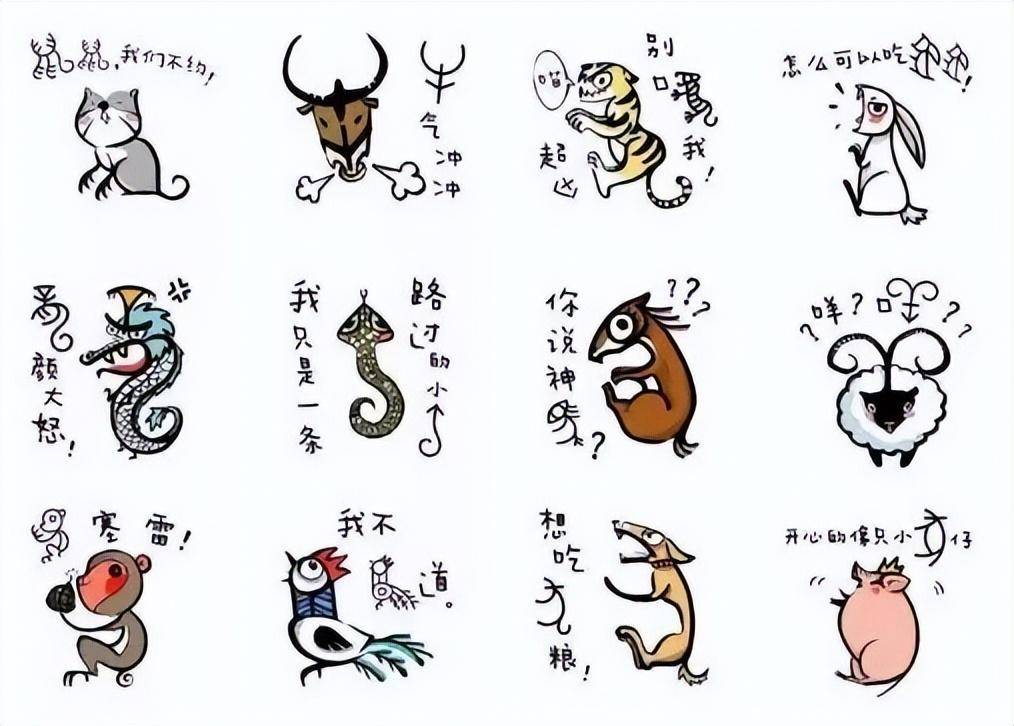 鼠鼠,我们不约!
牛气冲冲
喵
别唬我!
超凶
怎么可以吃兔兔!
龙颜大怒!
我只是一条
路过的小蛇
你说神马?
???
?咩?咩??
猴塞雷!
我不
鸡道。
想吃犬粮!
开心的像只小豕仔